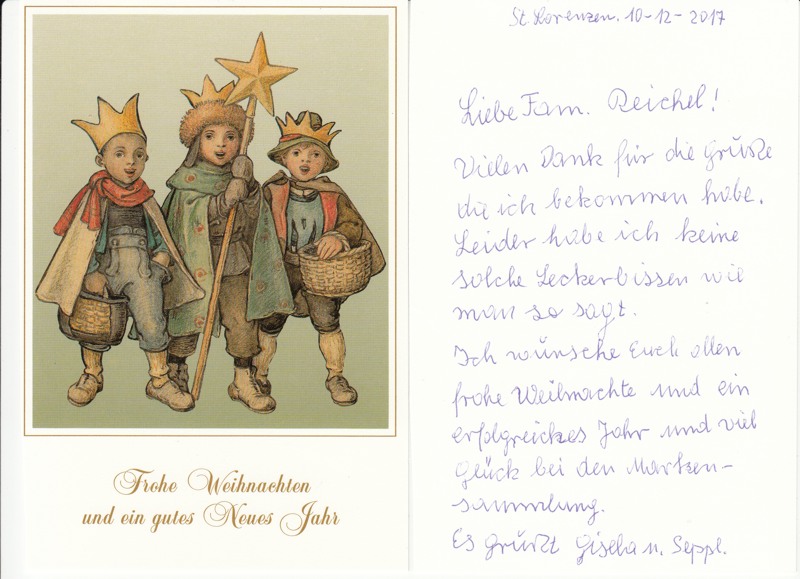 Frohe Weihnachten
und ein gutes Neues Jahr
St. Lorenzen. 10-12-2017
Liebe Fam. Reichel!
Vielen Dank für die Grüße
die ich bekommen habe.
Leider habe ich keine
solche Leckerbissen wie
man so sagt.
Ich wünsche Euch allen
frohe Weihnachte und ein
erfolgreiches Jahr und viel
Glück bei den Marken-
sammlung.
Es Grüßt Gisela u. Seppl.